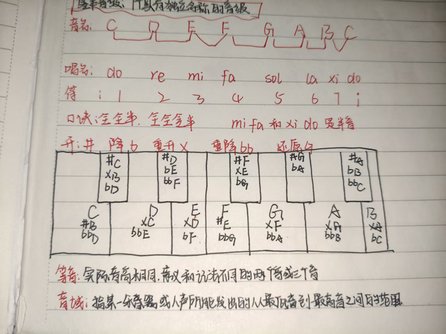 基本音级：具有独立名称的音级
音名： C D E F G A B C
唱名： do re mi fa sol la xi do
简： 1 2 3 4 5 6 7 i
口诀：全全半，全全全半 mi fa 和 xi do 是半音
升：# 降 b 重升 x 重降 bb 还原
#C #D #F #G #A
xB bE xE bA bB
bD bbF bG bbC
C D E F G A B
#B xC xD #E xF xG xA
bbD bbE bF bbG bbA bbB bC
等音：实际音高相同，意义和记法不同的两个或三个音
音域：指某一乐器或人声所能发出的从最低音到最高音之间的范围